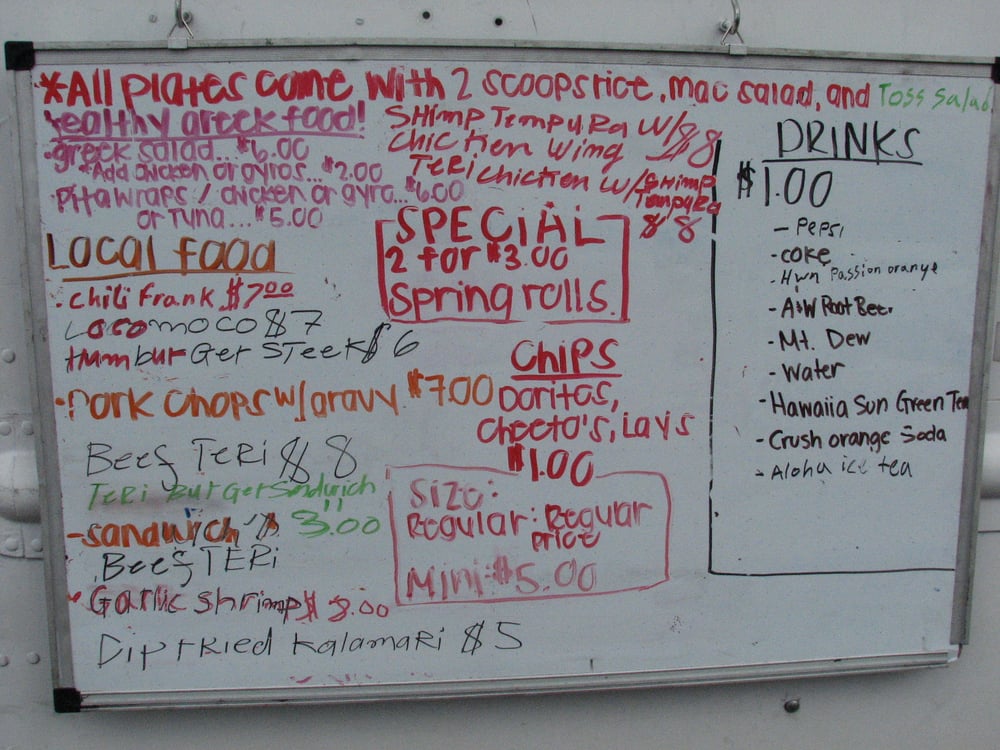 *All plates come with 2 scoops rice, mac salad, and Toss Salad
Healthy Greek food!
·greek salad...$6.00
*Add chicken or gyros...$2.00
Pita wraps / chicken or gyro...$6.00
or Tuna...$5.00
Local food
·chili Frank $7.00
Locomoco $7
Humburger STeek $6
·Pork chops w/gravy $7.00
Beef Teri $8
Teri burger Sandwich
-sandwich's 3.00
Beef TERi
·Garlic shrimp $8.00
Dip fried Kalamari $5
SHimp TempuRa w/
CHicken wing $8
TeRi CHicken w/SHimp
TempuRa
$8
SPECIAL
2 for $3.00
Spring rolls.
CHiPS
Doritos,
Cheeto's, Lays
$1.00
Size:
Regular: Regular
Price
Mini: $5.00
DRINKS
$1.00
- Pepsi
- coke
- Hwn Passion orange
- A&W Root Beer
- Mt. Dew
- Water
- Hawaiia Sun Green Tea
- Crush orange Soda
- Aloha ice tea